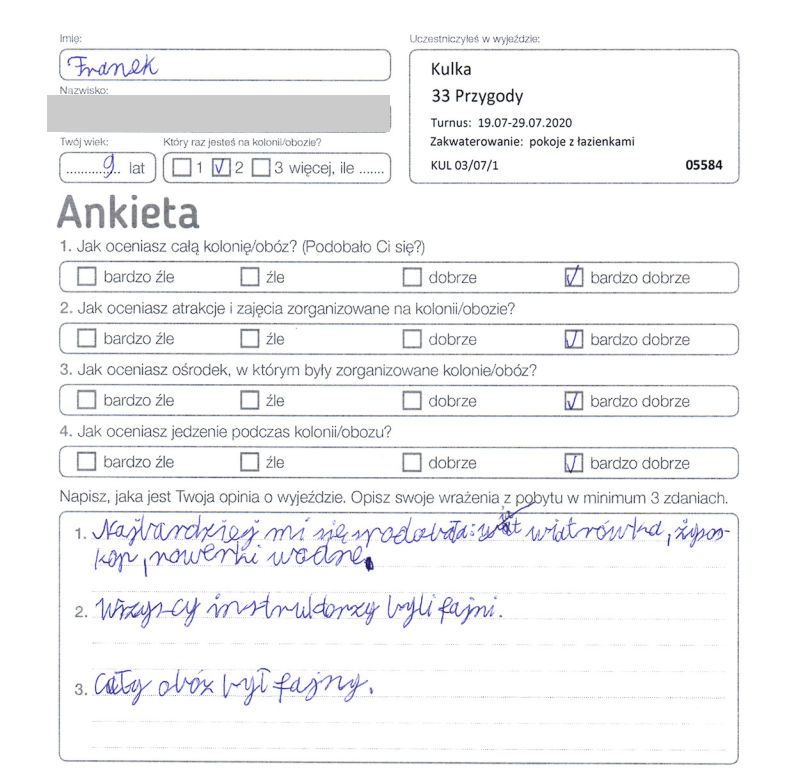 Imię:
Franek
Nazwisko:
Twój wiek:
9 lat
Który raz jesteś na kolonii/obozie?
1 2 3 więcej, ile .......
Uczestniczyłeś w wyjeździe:
Kulka
33 Przygody
Turnus: 19.07-29.07.2020
Zakwaterowanie: pokoje z łazienkami
KUL 03/07/1 05584
Ankieta
1. Jak oceniasz całą kolonię/obóz? (Podobało Ci się?)
bardzo źle źle dobrze bardzo dobrze
2. Jak oceniasz atrakcje i zajęcia zorganizowane na kolonii/obozie?
bardzo źle źle dobrze bardzo dobrze
3. Jak oceniasz ośrodek, w którym były zorganizowane kolonie/obóz?
bardzo źle źle dobrze bardzo dobrze
4. Jak oceniasz jedzenie podczas kolonii/obozu?
bardzo źle źle dobrze bardzo dobrze
Napisz, jaka jest Twoja opinia o wyjeździe. Opisz swoje wrażenia z pobytu w minimum 3 zdaniach.
1. Najbardziej mi się podobała: wiatrówka, żyros-
kop, rowerki wodne.
2. Wszyscy instruktorzy byli fajni.
3. Cały obóz był fajny.